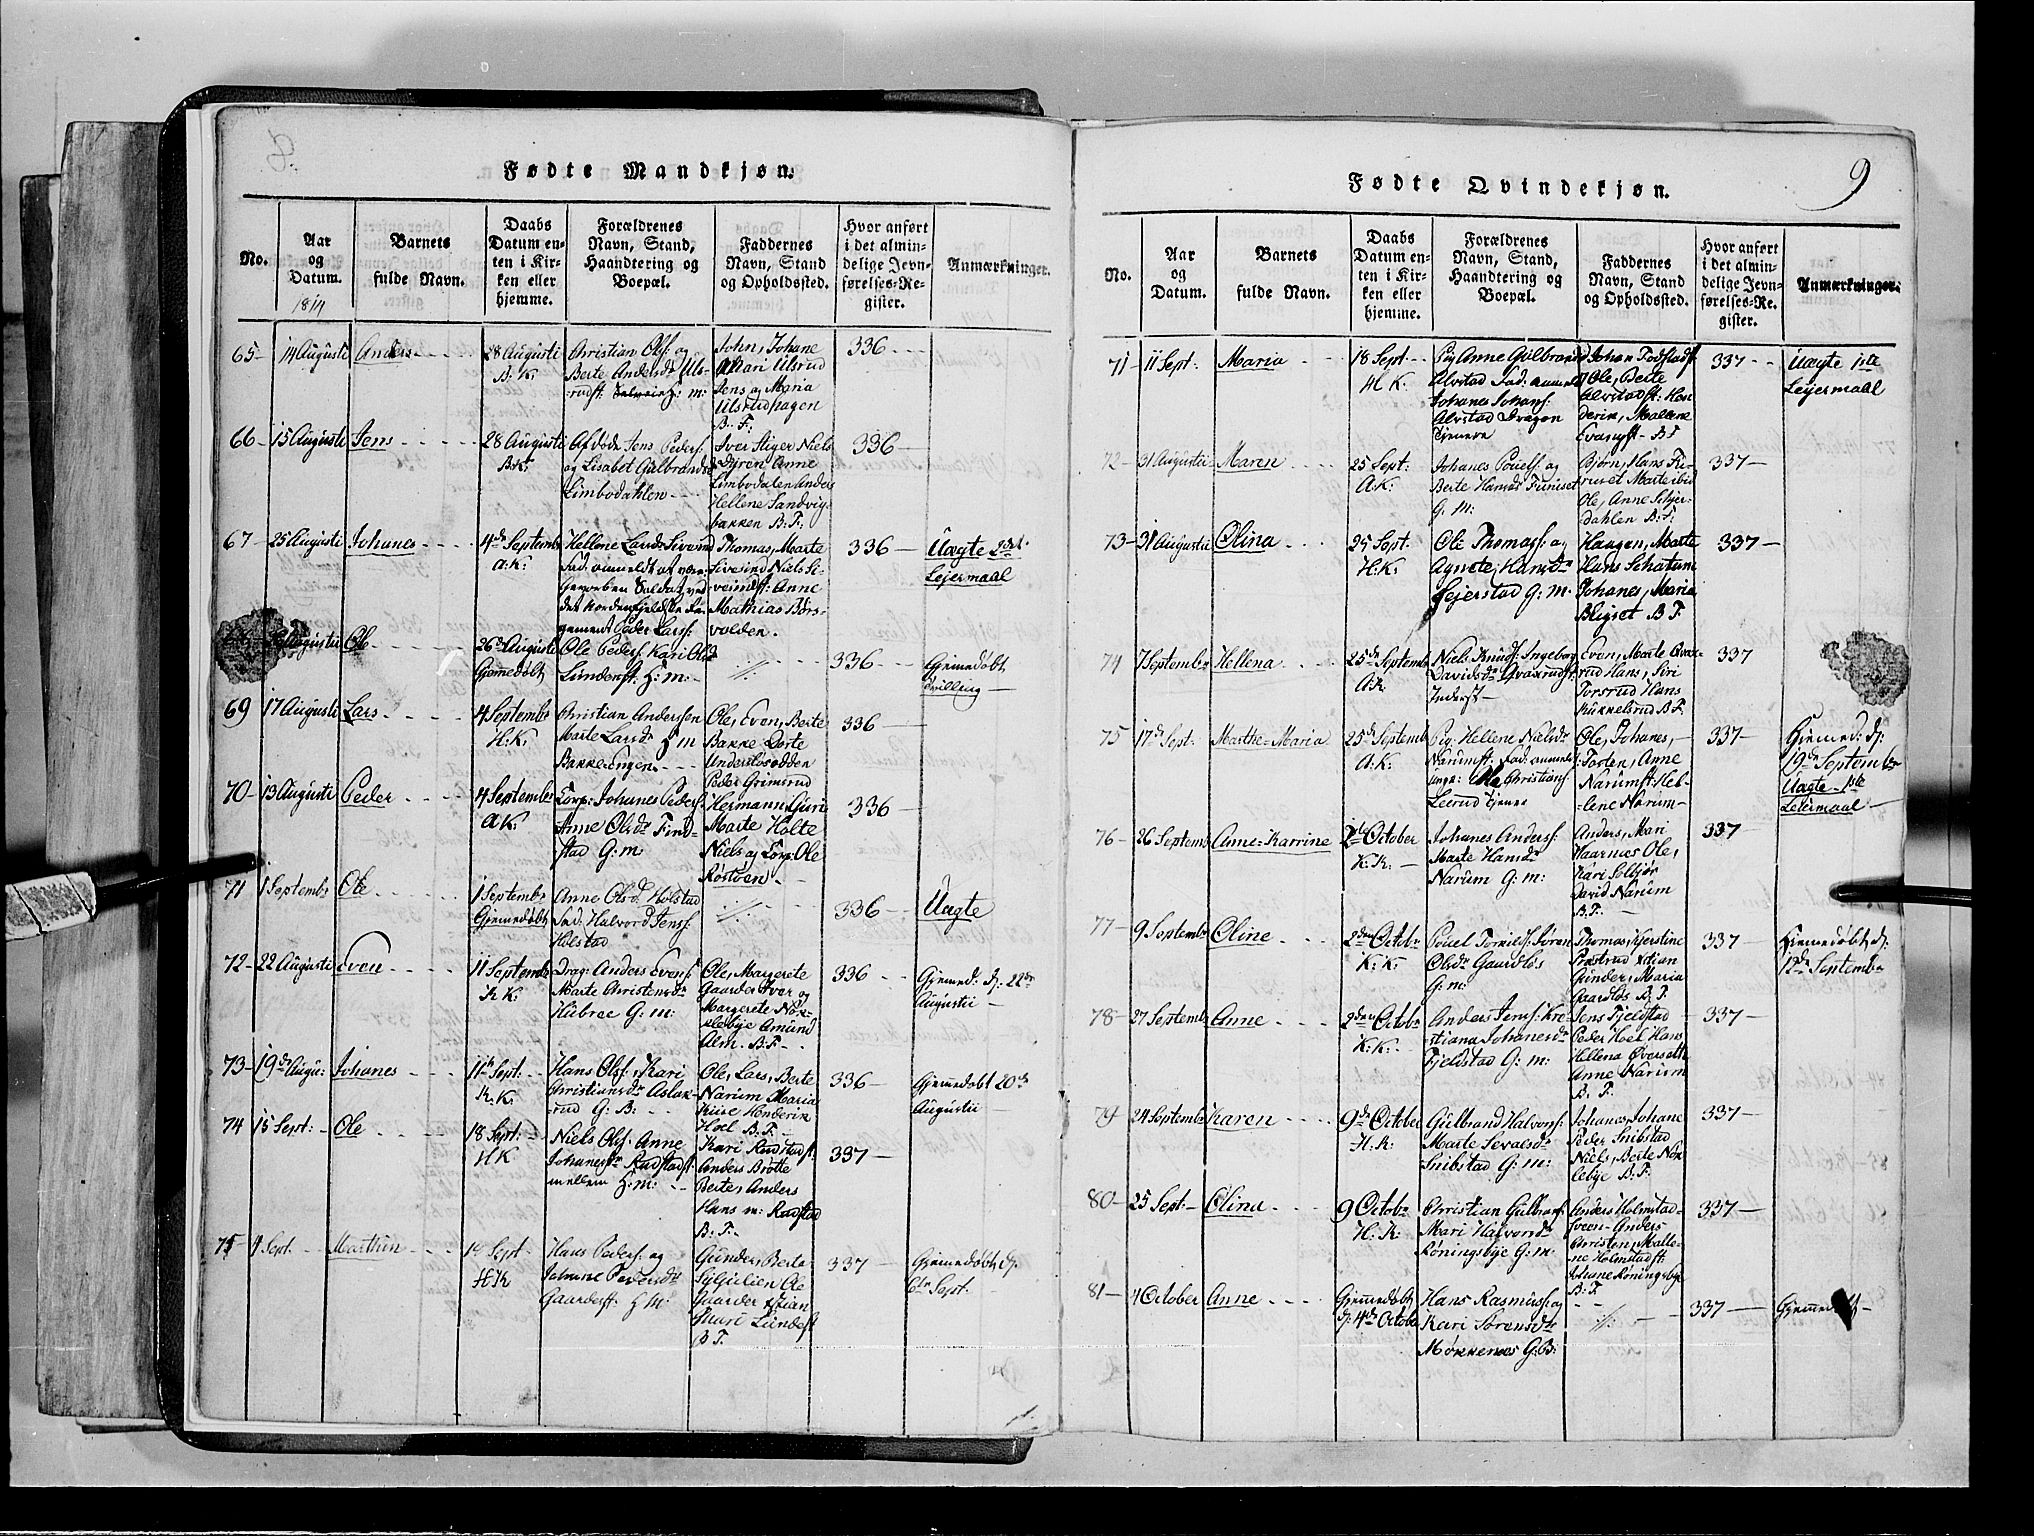 8.
Fødte Mandkjøn.
No.
Aar
og
Datum.
1814
Barnets
fulde Navn.
Daabs
Datum en-
ten i Kir-
ken eller
hjemme.
Forældrenes
Navn, Stand,
Haandtering og
Boepæl.
Faddernes
Navn, Stand
og Opholdssted.
Hvor anført
i det almin-
delige Jevn-
førelses-Re-
gister.
Anmærkninger.
65 - 14 Augusti
Anders
28 Augusti
B. K.
Christian Ols: og
Berte Andersdr Uls-
rudst: H: m:
John, Johane
Mari Ulsrud
Jens og Maria
Ulsrudhagen
B. F.
336
66 - 15 Augusti
Jens
28 Augusti
B. K.
Afdøde Jens Peders:
og Lisabet Gulbrands
Limbodahlen
Iver Stiger Niels
Dyren Anne
Limbodalen Anders
Hellene Sandvig-
bakken B: F:
336
67 - 25 Augusti
Johanes
4de Septembr
A: K:
Hellene Larsd: Sivesind
Fad: anmeldt at være
Gevorben Soldat ved
det Nordenfjeldske Re-
gement Peder Larss:
Thomas, Marte
Sivesind Niels Si-
vesindst: Anne
Mathias Børs-
volden.
336
Uægte 2det
Lejermaal
Augusti
Ole
26de Augusti
Gjemedøbt
Ole Peders: Kari Olsd
Lundenst: H: m:
-//-
336
Gjemedøbt
tvilling
69 17 Augusti
Lars
4 Septembr
H: K.
Christian Andersen
Marte Larsdr H m
Bakke Engen
Ole, Even, Berte
Bakke Dorte
Understosodden
Peder Grimsrud
336
70 - 13 Augusti
Peder
4 Septembr
A K:
Corp: Johanes Peders:
Anne Olsdr Find-
stad G: m
Hermann, Guri
Marte Holte
Niels og Corp: Ole
Røstøen
336
71 1 Septembr
Ole
1 Septembr
Gjemedøbt
Anne Olsd. Holstad
Fad: Halvord Jens:
Holstad
-//-
336
Uægte
72 - 22 Augusti
Even
11 Septembr
K K:
Drag: Anders Evens:
Marte Christensdr
Hubroe G: m:
Ole, Margrete
Gaarder Iver og
Margrete Nøk-
lebye Amund
Alm. B: F.
336
Gjemed: d: 22de
Augustii
73 - 19de Augu:
Johanes
11te Sept.
K. K.
Hans Ols: Kari
Christiansdr Aslak-
rud G: B:
Ole, Lars, Berte
Narum Maria
Kiise Henderik
Hoel B. F.
336
Gjemedøbt 20de
Augustii
74 15 Sept:
Ole
18 Sept:
H K
Niels Ols: Anne
Johanesdr Radstadst:
mellem H: m:
Kari Radstadst:
Anders Brotte
Berte, Anders
Hans m: Radstad
B: F.
337
75 4 Sept.
Marthin
18 Sept.
H K
Hans Peders: og
Johane Pedersdr
Gaarderst: H m:
Gunder, Berte
Ole
Gaarder Xtian
Mari Lundest
B F.
337
Gjemedøbt d:
6te Sept.
9
Fødte Qvindekjøn.
No.
Aar
og
Datum.
Barnets
fulde Navn.
Daabs
Datum en-
ten i Kir-
ken eller
hjemme.
Forældrenes
Navn, Stand,
Haandtering og
Boepæl.
Faddernes
Navn, Stand
og Opholdssted.
Hvor anført
i det almin-
delige Jevn-
førelses-Re-
gister.
Anmærkninger.
71 - 11 Sept:
Maria
18 Sept.
H K.
Pig: Anne Gulbrandsd
Alvstad Fad: anmeldt
Johanes Johans:
Alvstad Dragon
Tjenere
Johan Todstadst.
Ole, Berte
Alvstadst: Hen-
derik, Mallene
Evangst. B F
337
Uægte 1ste
Lejermaal
72 - 31 Augustii
Maren
25 Sept:
A: K:
Johanes Pouels: og
Berte Hansdr Furuset
G: m:
Bjørn, Hans Fu-
ruset Marte ibid
Ole, Anne Schjer-
dahlen B: F:
337
73 - 31 Augustii
Olina
25 Sept.
H: K:
Ole Thomas: og
Agnete Hansdr
Sejerstad G: m.
Haagen, Marte
Hans Schatum
Johanes, Maria
Bligset B F.
337
74 7 Septembr
Hellena
25de Septemb
A: K:
Niels Knuds: Ingeborg
Davidsdr Qværudst
Inderst
Even, Marte Qvæ-
rud Hans, Siri
Torsrud Hans
Kukkelsrud B F.
337
75 17de Sept:
Marthe-Maria
25de Septemb
A: K:
Pig: Hellene Nielsdr
Narumst: Fad: anmeldt
Ungk: Ole Christians:
Leerud Tjener
Ole, Johanes,
Torsten, Anne
Narumst: Hel-
lene Narum
337
Hjemed: d:
19de Septembr
Uægte 1ste
Leiermaal
76 - 26 Septemb
Anne-Karrine
2de October
K: K.
Johanes Anders:
Marte Hansdr
Narum G: m:
Anders, Mari
Haarnæs Ole,
Kari Solbjør
David Narum
B: F.
337
77 - 9 Septembr
Oline
2den Octobr
K: K.
Pouel Tomild: Søren
Olsdr Gaardløs
G: m:
Thomas, Kjerstine
Præstrud Xtian
Gunder, Maria
Gaardløs B: F:
337
Hjemedøbt d:
12de Septembr
78 - 27 Septembr
Anne
2den Octobr
K: K.
Anders Jens: Kre-
stiana Johanesdr
Fjeldstad G: m:
Jens Fjeldstad
Peder Hoel Hans
Hellena Øveraath
Anne Narum
B. F.
337
79 - 24 Septembr
Karen
9de October
H. K:
Gulbrand Halvors:
Marte Sevalsdr
Snibstad G: m:
Johanes, Johane
Peder Snibstad
Niels, Berte Nøk-
lebye B. F:
337
80 - 25 Sept:
Olina
9 Octobr
H: K:
Christian Gulbrs:
Mari Halvordr
Røningsbye G: m:
Anders Holmstad-
sveen Anders
Christen, Malle-
ne Holmstadst:
Johane Røningsbye
B: F.
337
81 - 4 October
Anne
Gjemmedøbt
d: 4de Octobr
Hans Rasmus: og
Kari Sørensdr
Mønnenæs G: B:
-//-
337
Gjemmedøbt